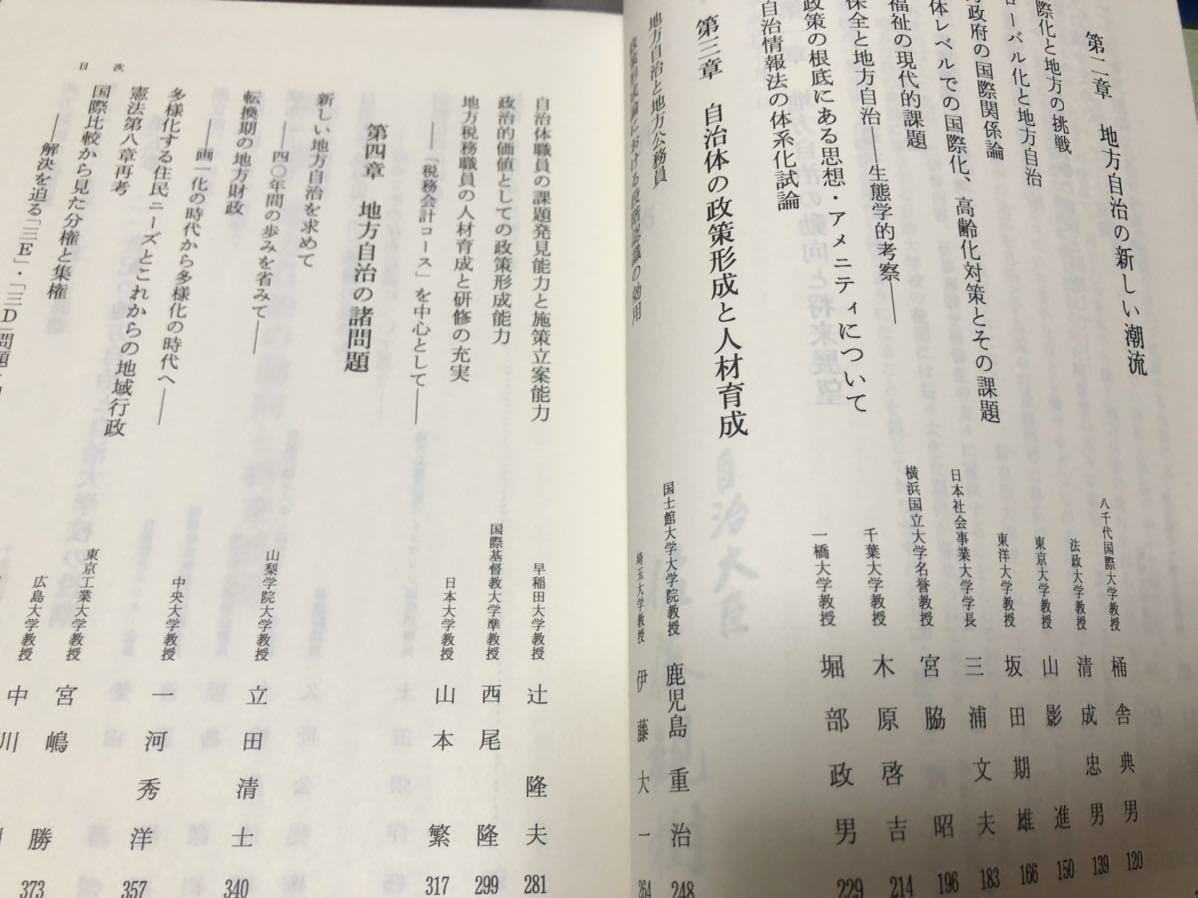 第二章　地方自治の新しい潮流
際化と地方の挑戦　八千代国際大学教授　桶舎典男　120
ローバル化と地方自治　法政大学教授　清成忠男　139
政府の国際関係論　東京大学教授　山影進　150
体レベルでの国際化、高齢化対策とその課題　東洋大学教授　坂田期雄　166
福祉の現代的課題　日本社会事業大学学長　三浦文夫　183
保全と地方自治――生態学的考察――　横浜国立大学名誉教授　宮脇昭　196
政策の根底にある思想・アメニティについて　千葉大学教授　木原啓吉　214
自治情報法の体系化試論　一橋大学教授　堀部政男　229
第三章　自治体の政策形成と人材育成
地方自治と地方公務員　国士館大学大学院教授　鹿児島重治　248
政策形成論における段階認識の効用　埼玉大学教授　伊藤大一　264
自治体職員の課題発見能力と施策立案能力　早稲田大学教授　辻隆夫　281
政治的価値としての政策形成能力　国際基督教大学準教授　西尾隆　299
地方税務職員の人材育成と研修の充実
――「税務会計コース」を中心として――　日本大学教授　山本繁　317
第四章　地方自治の諸問題
新しい地方自治を求めて
――四〇年間の歩みを省みて――　山梨学院大学教授　立田清士　340
転換期の地方財政
――画一化の時代から多様化の時代へ――　中央大学教授　一河秀洋　357
多様化する住民ニーズとこれからの地域行政　東京工業大学教授　宮嶋勝　373
憲法第八章再考　広島大学教授　中川
国際比較から見た分権と集権
――解決を迫る「三E」・「三D」問題
目次